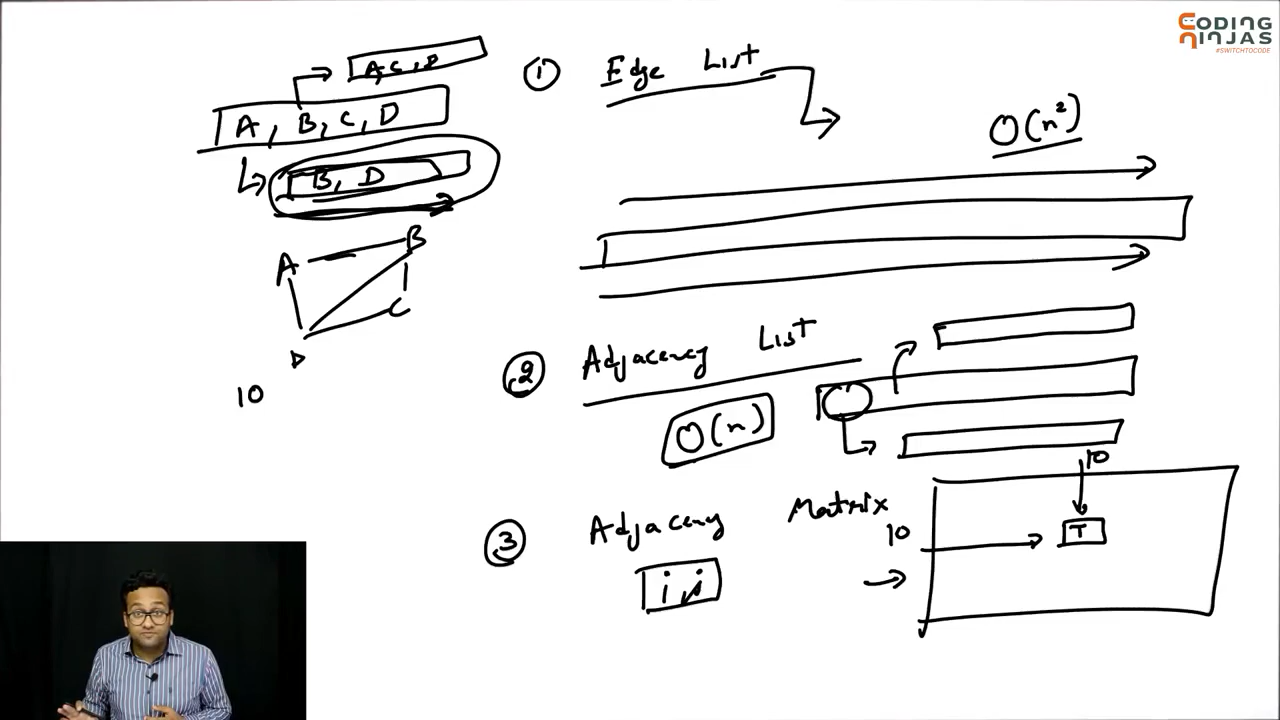 CODING
NINJAS
#SWITCHTOCODE
A, C, D
A, B, C, D
B, D
A
B
C
D
10
① Edge List
O(n²)
② Adjacency List
O(n)
③ Adjacency Matrix
i, j
10
10
T